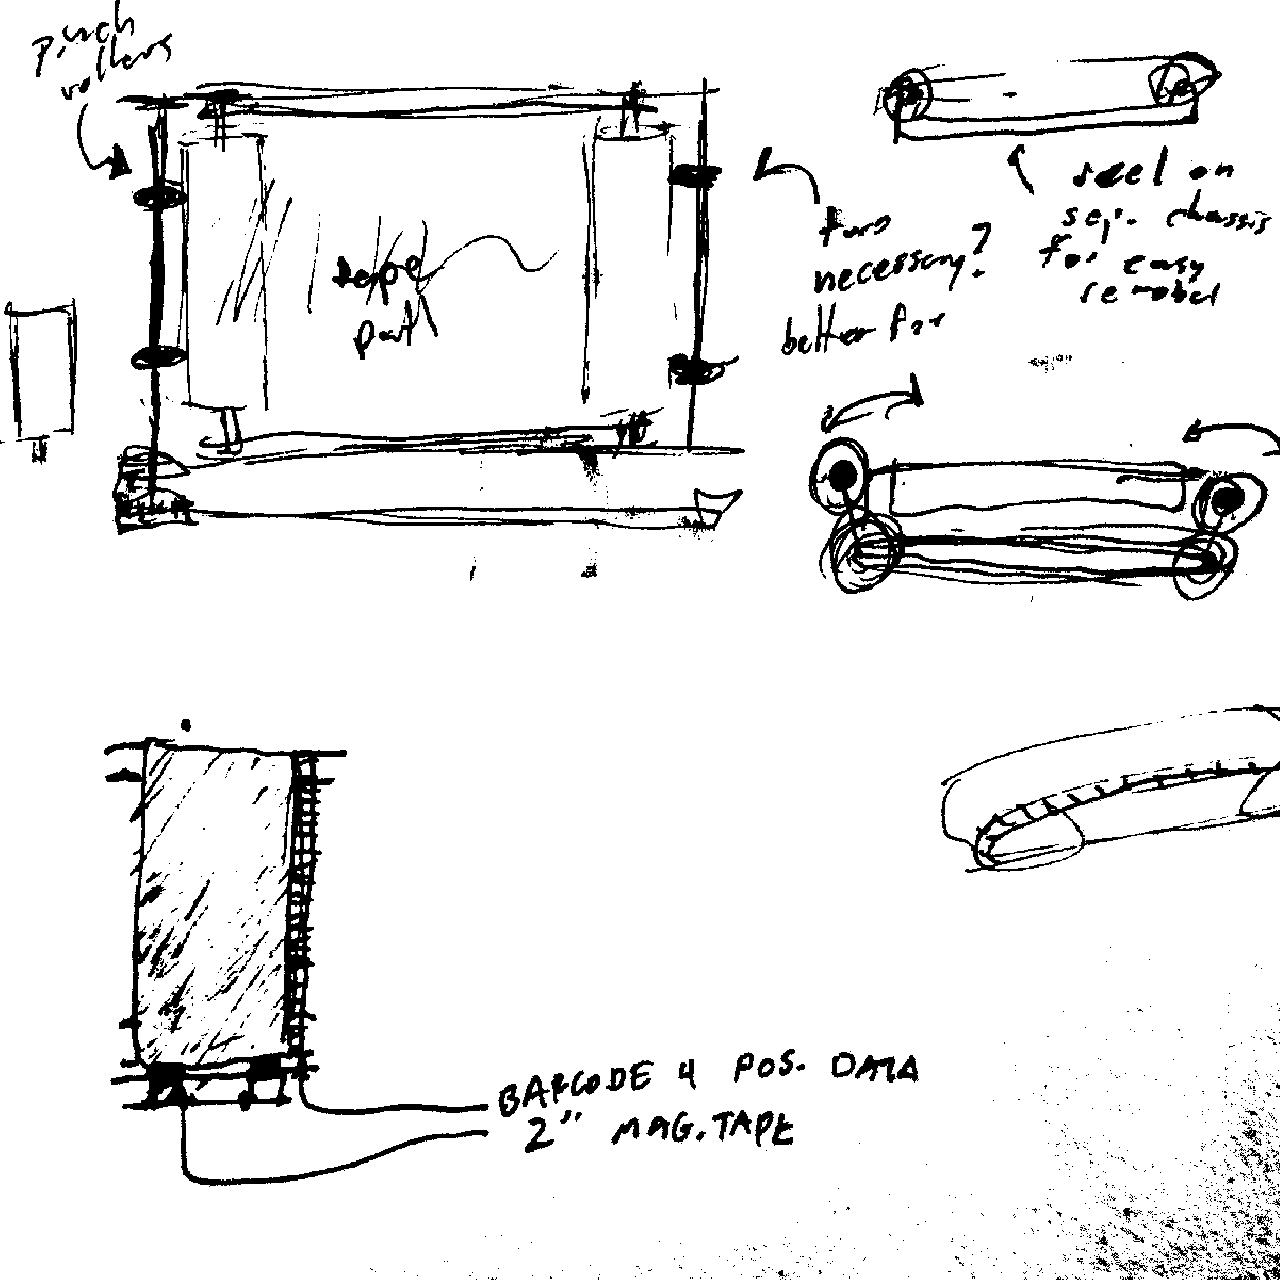 pinch
rollers
tape
path
two
necessary?
better for
reel on
sep. chassis
for easy
removal
BARCODE 4 POS. DATA
2" MAG. TAPE